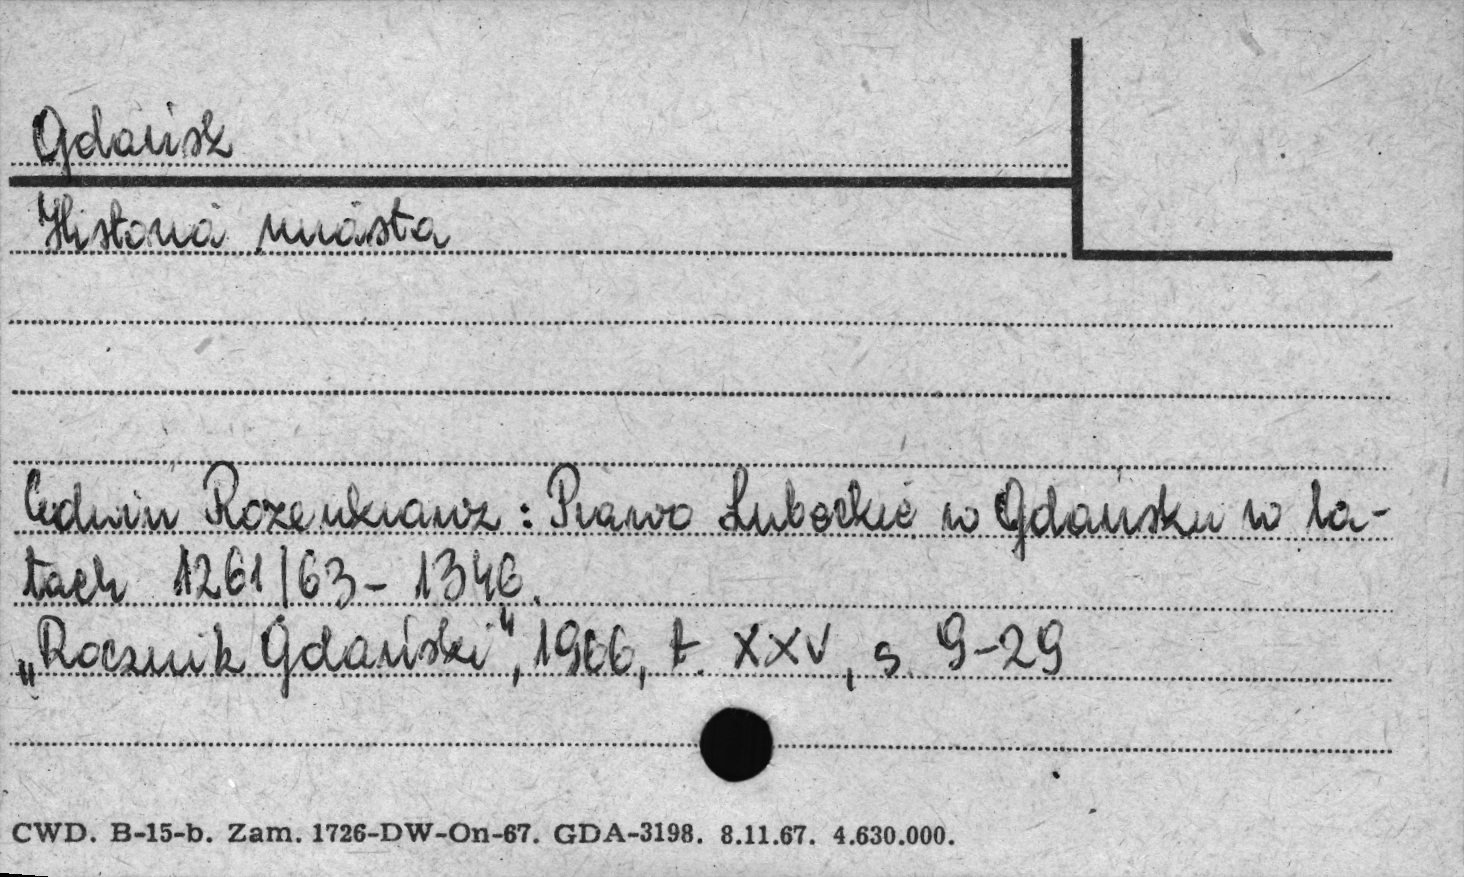 Gdańsk
Historia miasta
Edwin Rozenkranz : Prawo Lubeckie w Gdańsku w la-
tach 1261/63 - 1346.
„Rocznik Gdański", 1966, t. XXV, s. 9-29
CWD. B-15-b. Zam. 1726-DW-On-67. GDA-3198. 8.11.67. 4.630.000.